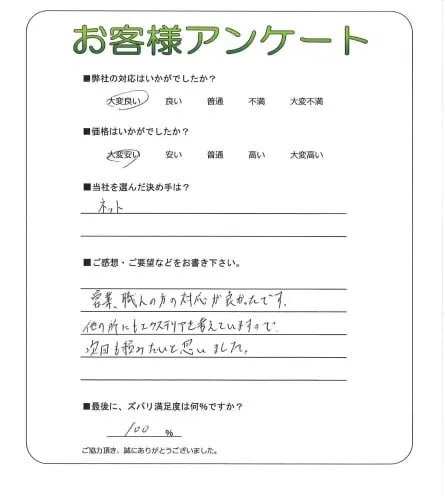 お客様アンケート
■弊社の対応はいかがでしたか？
大変良い 良い 普通 不満 大変不満
■価格はいかがでしたか？
大変安い 安い 普通 高い 大変高い
■当社を選んだ決め手は？
ネット
■ご感想・ご要望などをお書き下さい。
営業、職人の方の対応が良かったです。
他の所にもエクステリアを考えていますので
次回も頼みたいと思いました。
■最後に、ズバリ満足度は何%ですか？
100 %
ご協力頂き、誠にありがとうございました。